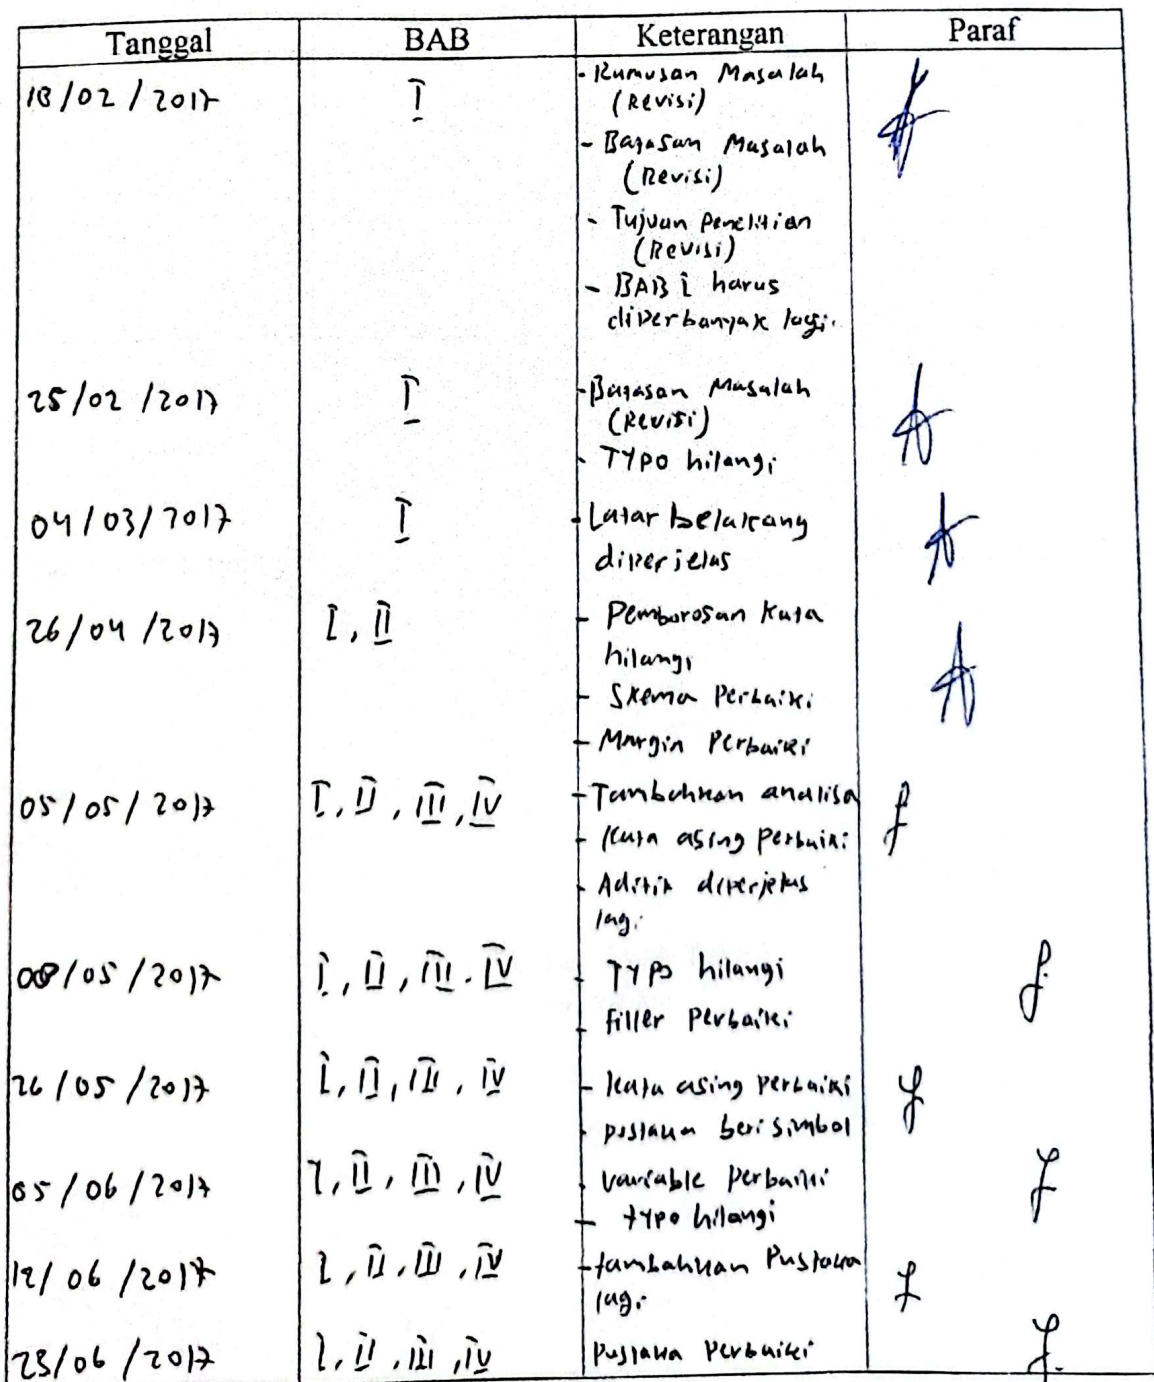 Tanggal BAB Keterangan Paraf
18/02/2017 I - Rumusan Masalah
(Revisi)
- Batasan Masalah
(Revisi)
- Tujuan Penelitian
(Revisi)
- BAB I harus
diperbanyak lagi.
25/02/2017 I - Batasan Masalah
(Revisi)
- Typo hilangi
04/03/2017 I - Latar belakang
diperjelas
26/04/2017 I, II - Pemborosan Kata
hilangi
- Skema Perbaiki
- Margin Perbaiki
05/05/2017 I, II, III, IV - Tambahkan analisa
- Kata asing Perbaiki
- Aditif diperjelas
lagi
08/05/2017 I, II, III, IV - Typo hilangi
- Filler Perbaiki
26/05/2017 I, II, III, IV - Kata asing perbaiki
- pustaka beri simbol
05/06/2017 I, II, III, IV - variable Perbaiki
- typo hilangi
12/06/2017 I, II, III, IV - tambahkan Pustaka
lagi
23/06/2017 I, II, III, IV Pustaka Perbaiki